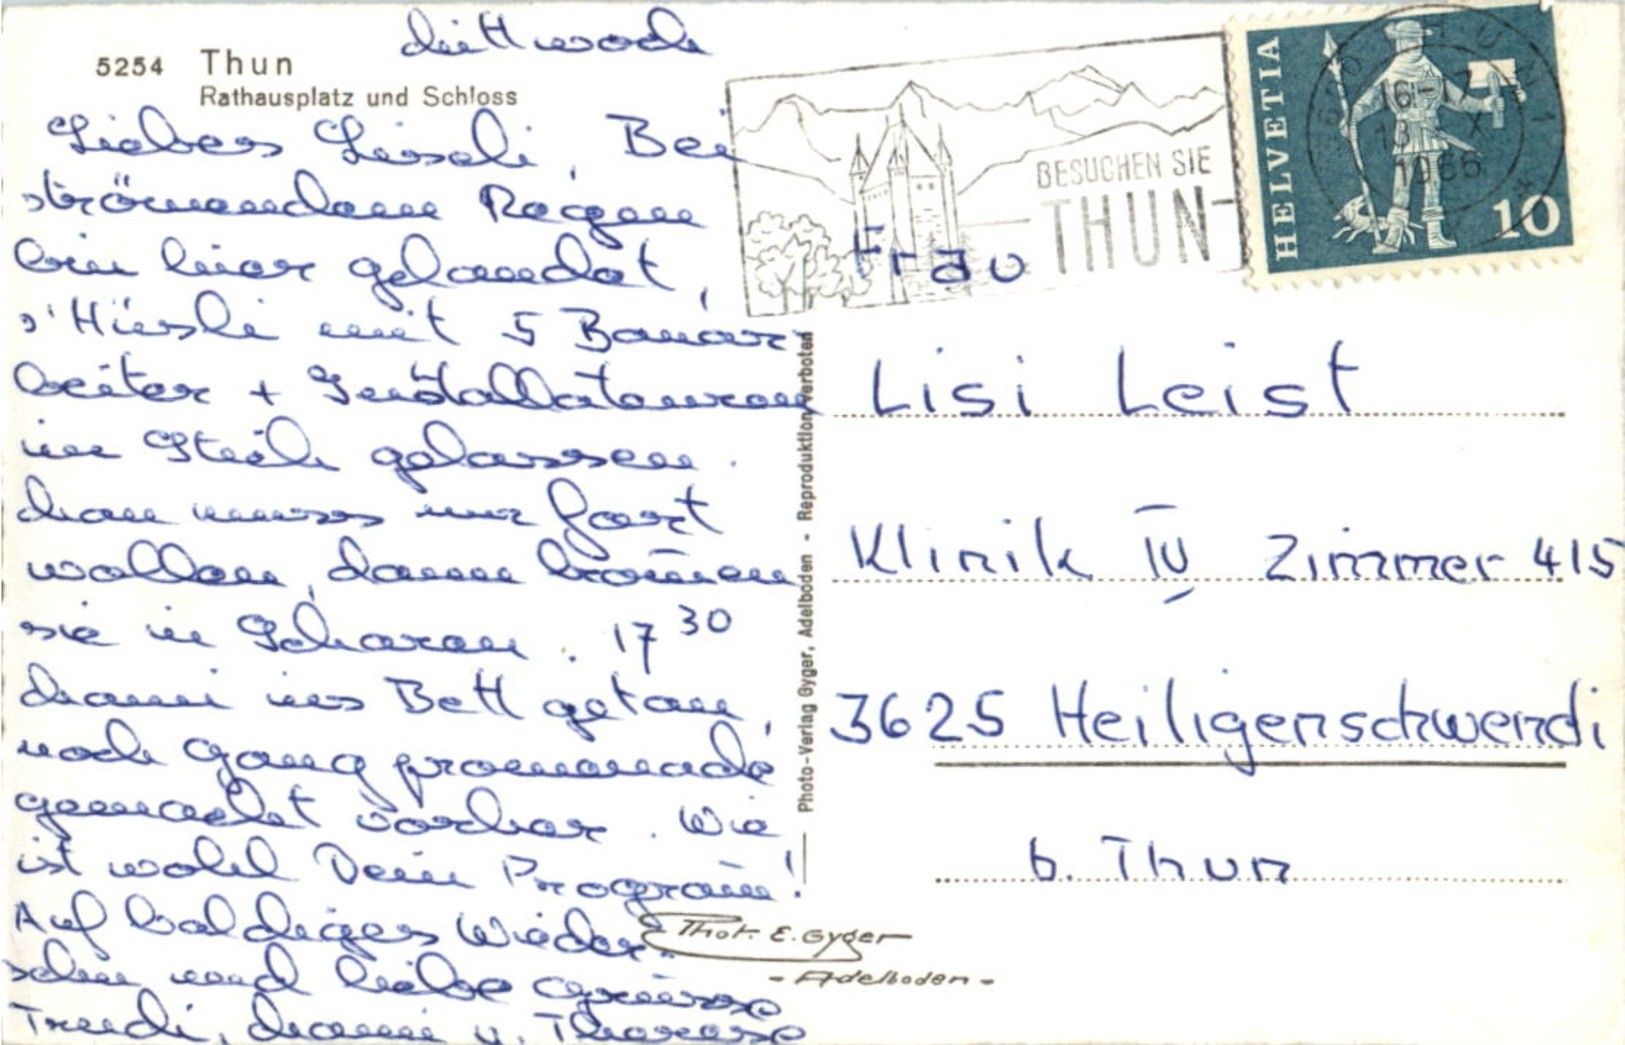 Mittwoch
5254 Thun
Rathausplatz und Schloss
Liebes Liseli, Bei
strömendem Regen
bin hier gelandet,
s'Hüsli mit 5 Bauar-
beiter + Installateuren
im Stich gelassen.
Man muss nur fort
wollen, dann kommen
sie in Scharen. 17 30
Mami ins Bett getan,
noch Gang promenade
gemacht vorher. Wie
ist wohl Dein Program!
Auf baldiges Wieder-
sehn und liebe Grüsse
Trudi, Mami u. Therese
BESUCHEN SIE
THUN
HELVETIA
10
3600 THUN 1
16-17
13. X
1966
Frau
Lisi Leist
Klinik IV Zimmer 415
3625 Heiligenschwendi
b. Thun
Photo-Verlag Gyger, Adelboden - Reproduktion verboten
Phot. E. Gyger
- Adelboden -